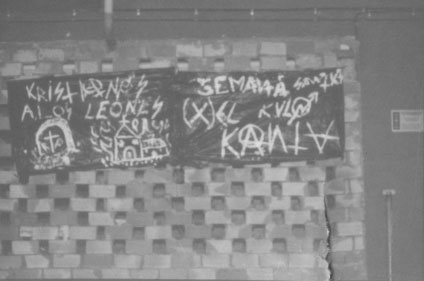 KRISTIANOS
A LOS LEONES
SEMANA SANTA
(X) EL KULO